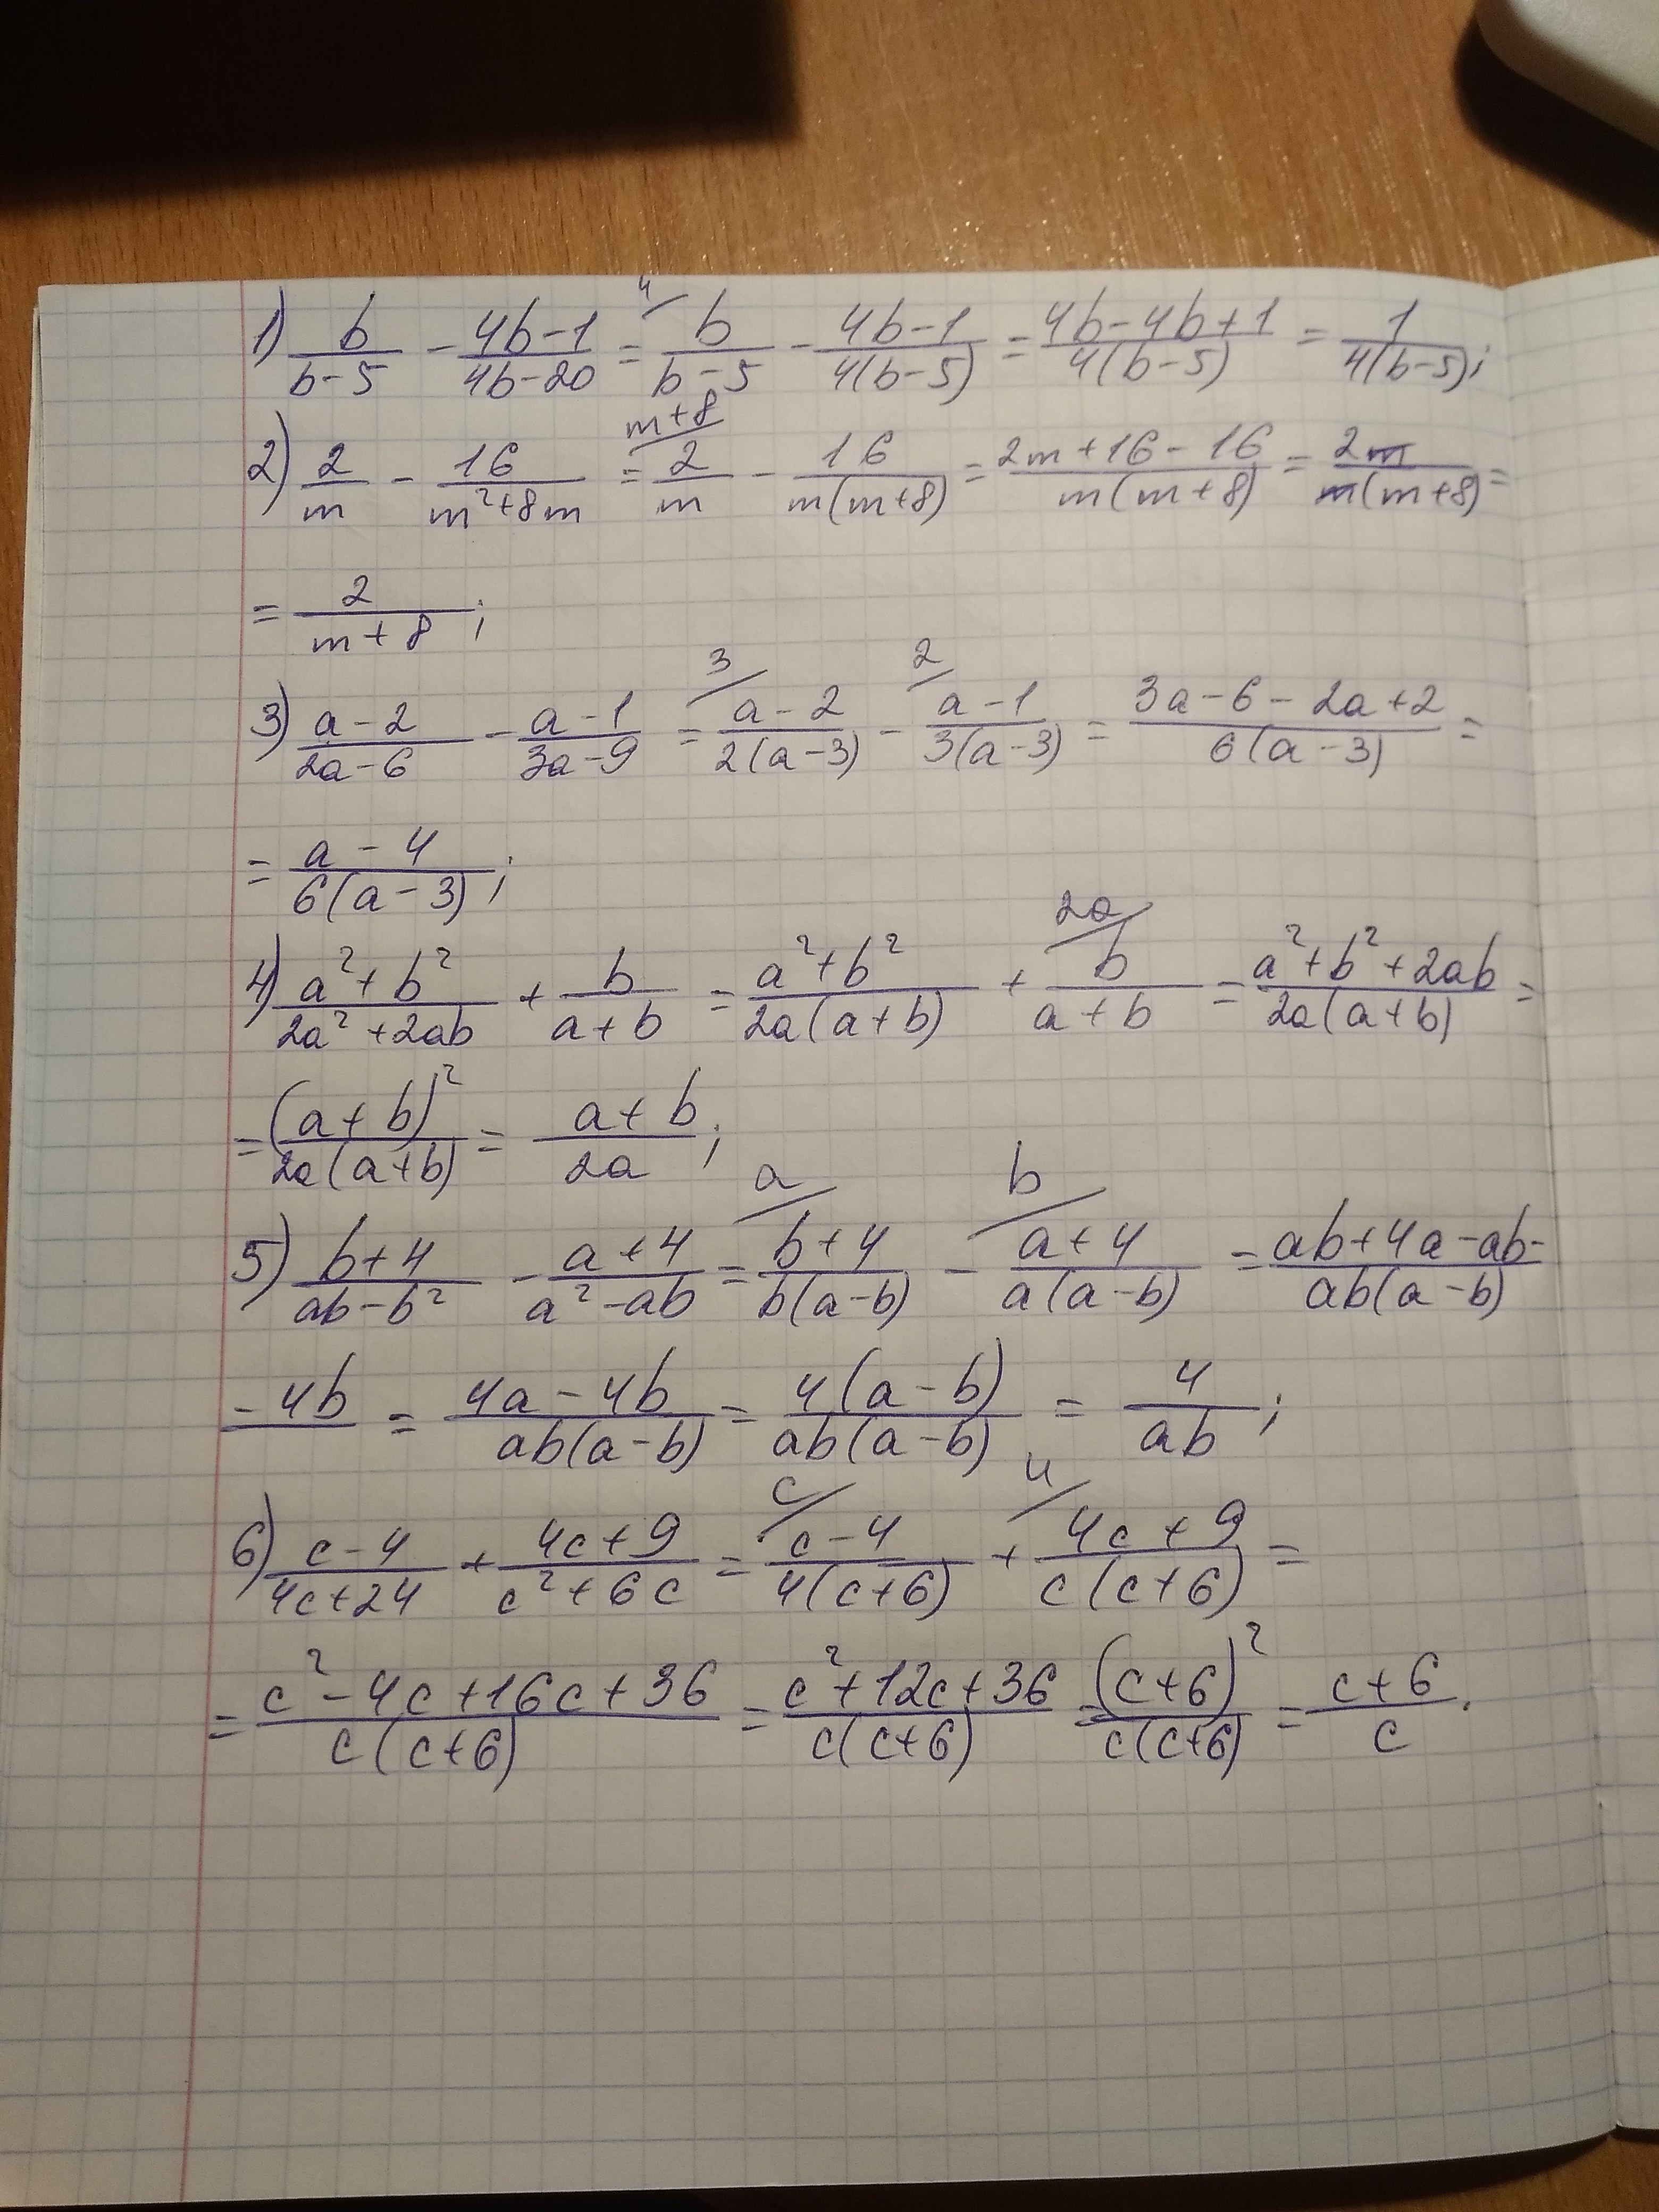 1) b/(b-5) - (4b-1)/(4b-20) = ⁴⁄ b/(b-5) - (4b-1)/(4(b-5)) = (4b-4b+1)/(4(b-5)) = 1/(4(b-5));
2) 2/m - 16/(m²+8m) = ᵐ⁺⁸⁄ 2/m - 16/(m(m+8)) = (2m+16-16)/(m(m+8)) = 2m/(m(m+8)) =
= 2/(m+8);
3) (a-2)/(2a-6) - (a-1)/(3a-9) = ³⁄ (a-2)/(2(a-3)) - ²⁄ (a-1)/(3(a-3)) = (3a-6-2a+2)/(6(a-3)) =
= (a-4)/(6(a-3));
4) (a²+b²)/(2a²+2ab) + b/(a+b) = (a²+b²)/(2a(a+b)) + ²ᵃ⁄ b/(a+b) = (a²+b²+2ab)/(2a(a+b)) =
= (a+b)²/(2a(a+b)) = (a+b)/(2a);
5) (b+4)/(ab-b²) - (a+4)/(a²-ab) = ᵃ⁄ (b+4)/(b(a-b)) - ᵇ⁄ (a+4)/(a(a-b)) = (ab+4a-ab-)/(ab(a-b))
-4b = (4a-4b)/(ab(a-b)) = 4(a-b)/(ab(a-b)) = 4/(ab);
6) (c-4)/(4c+24) + (4c+9)/(c²+6c) = ᶜ⁄ (c-4)/(4(c+6)) + ⁴⁄ (4c+9)/(c(c+6)) =
= (c²-4c+16c+36)/(c(c+6)) = (c²+12c+36)/(c(c+6)) = (c+6)²/(c(c+6)) = (c+6)/c.